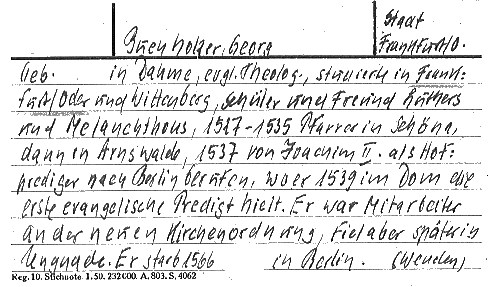 Staat
Buchholzer, Georg Frankfurt/O.
Geb. in Dahme, evgl. Theolog., studierte in Frank-
furt/Oder und Wittenberg, Schüler und Freund Luthers
und Melanchthons, 1527-1535 Pfarrer in Schöna,
dann in Arnswalde, 1537 von Joachim II. als Hof-
prediger nach Berlin berufen, wo er 1539 im Dom die
erste evangelische Predigt hielt. Er war Mitarbeiter
an der neuen Kirchenordnung, fiel aber später in
Ungnade. Er starb 1566 in Berlin. (Wenden)
Reg. 10. Stichnote. 1. 50. 232000. A. 803. S. 4062